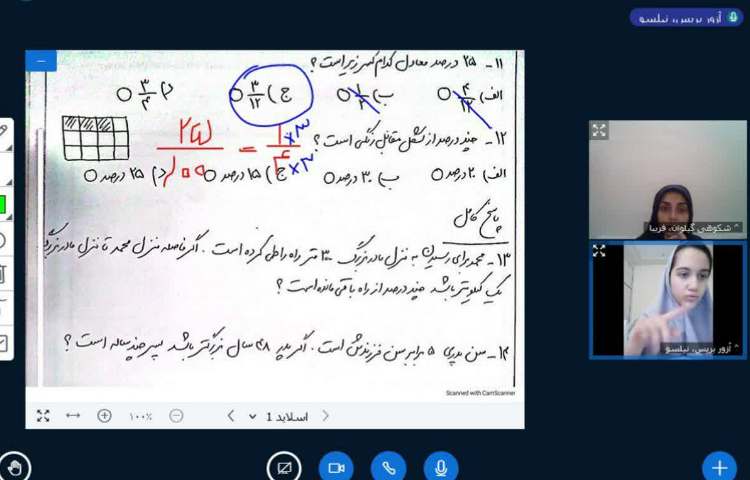 آزور بریس، نیلسو
۱۱- ۲۵ درصد معادل کدام کسر زیر است؟
الف) ۴/۱۲ ب) ۱/۲ ج) ۳/۱۲ د) ۳/۴
۱۲- چند درصد از شکل مقابل رنگی است؟
۲۵/۱۰۰ = ۱×۳/۴×۳
الف) ۲۰ درصد ب) ۳۰ درصد ج) ۱۵ درصد د) ۲۵ درصد
پاسخ کامل
۱۳- محمد برای رسیدن به منزل مادربزرگ ۳۰۰ متر راه را طی کرده است. اگر فاصله منزل محمد تا منزل مادربزرگ
یک کیلومتر باشد چند درصد از راه باقی مانده است؟
۱۴- سن پدری ۵ برابر سن فرزندش است. اگر پدر ۴۸ سال بزرگتر باشد پسر چند ساله است؟
Scanned with CamScanner
۱۰۰٪
اسلاید 1
شکوهی گیلوان، فریبا
آزور بریس، نیلسو